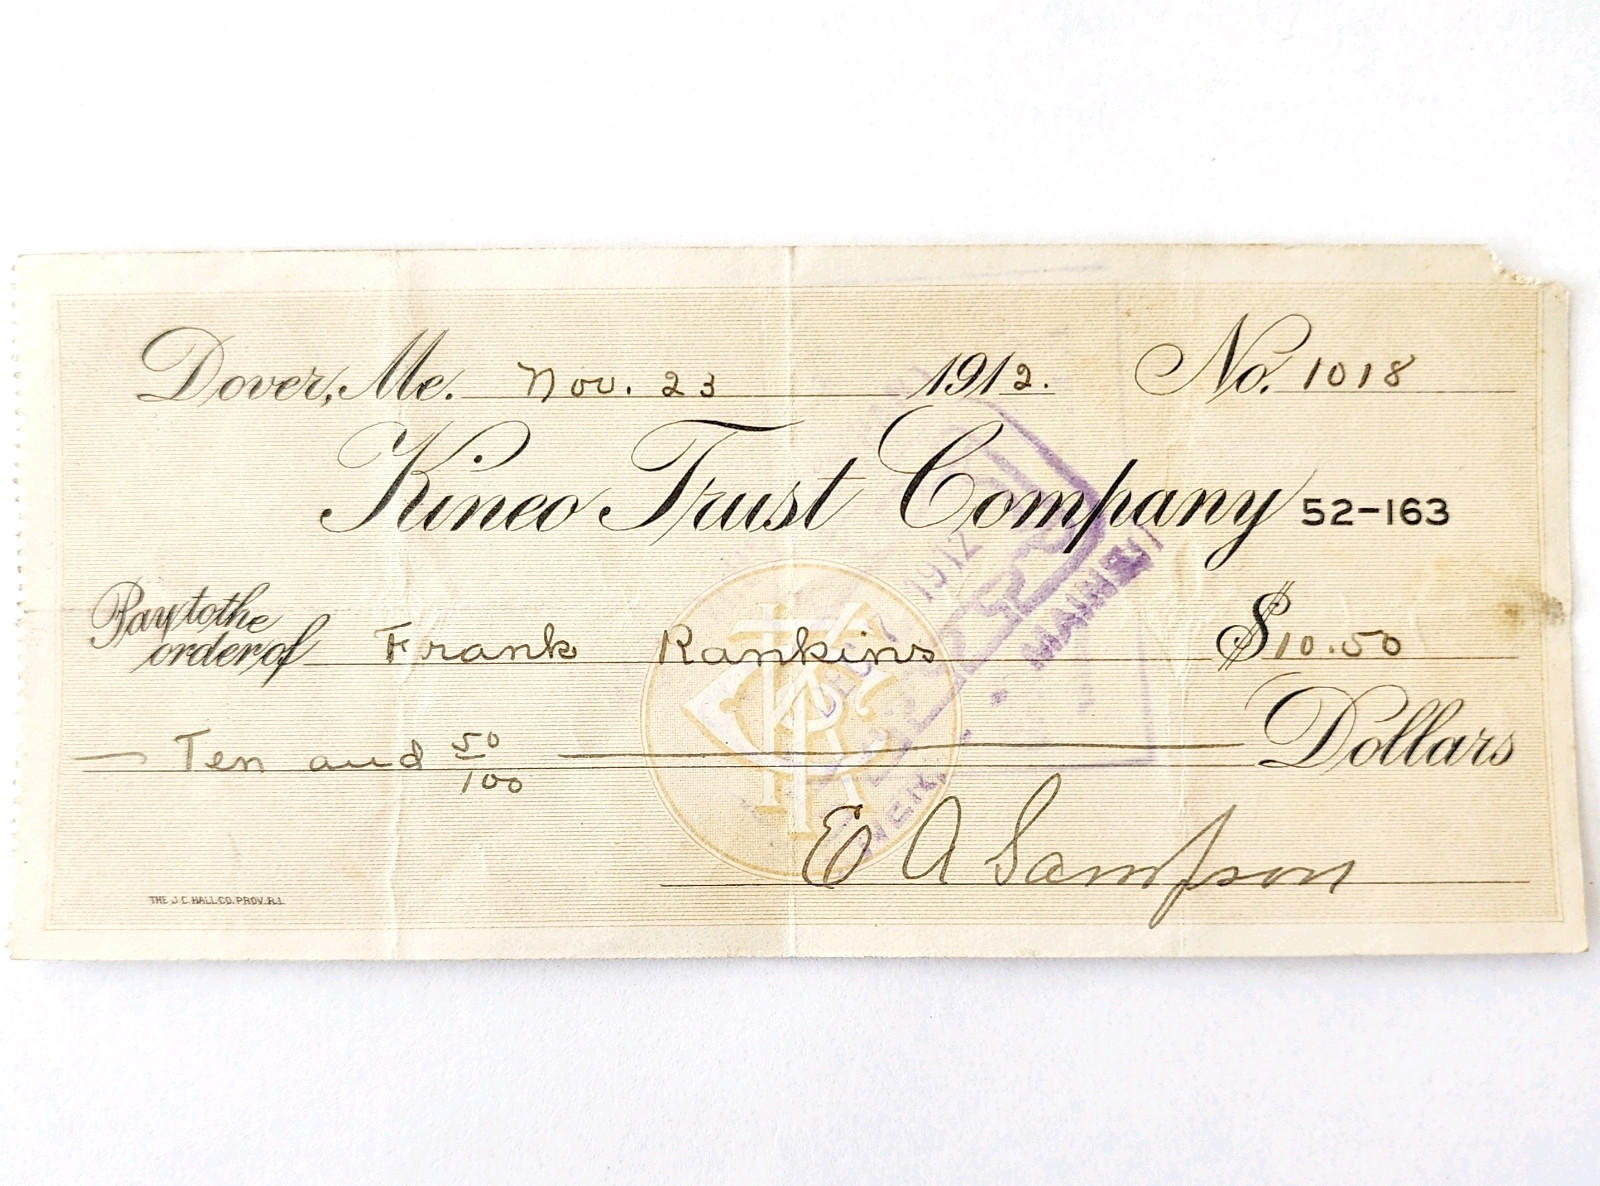 Dover, Me. Nov. 23 1912. No. 1018
Kineo Trust Company 52-163
Pay to the order of Frank Rankins $10.50
Ten and 50/100 Dollars
E A Sampson
THE J.C. HALL CO. PROV. R.I.
DEC 7 1912
PAID
MAINE